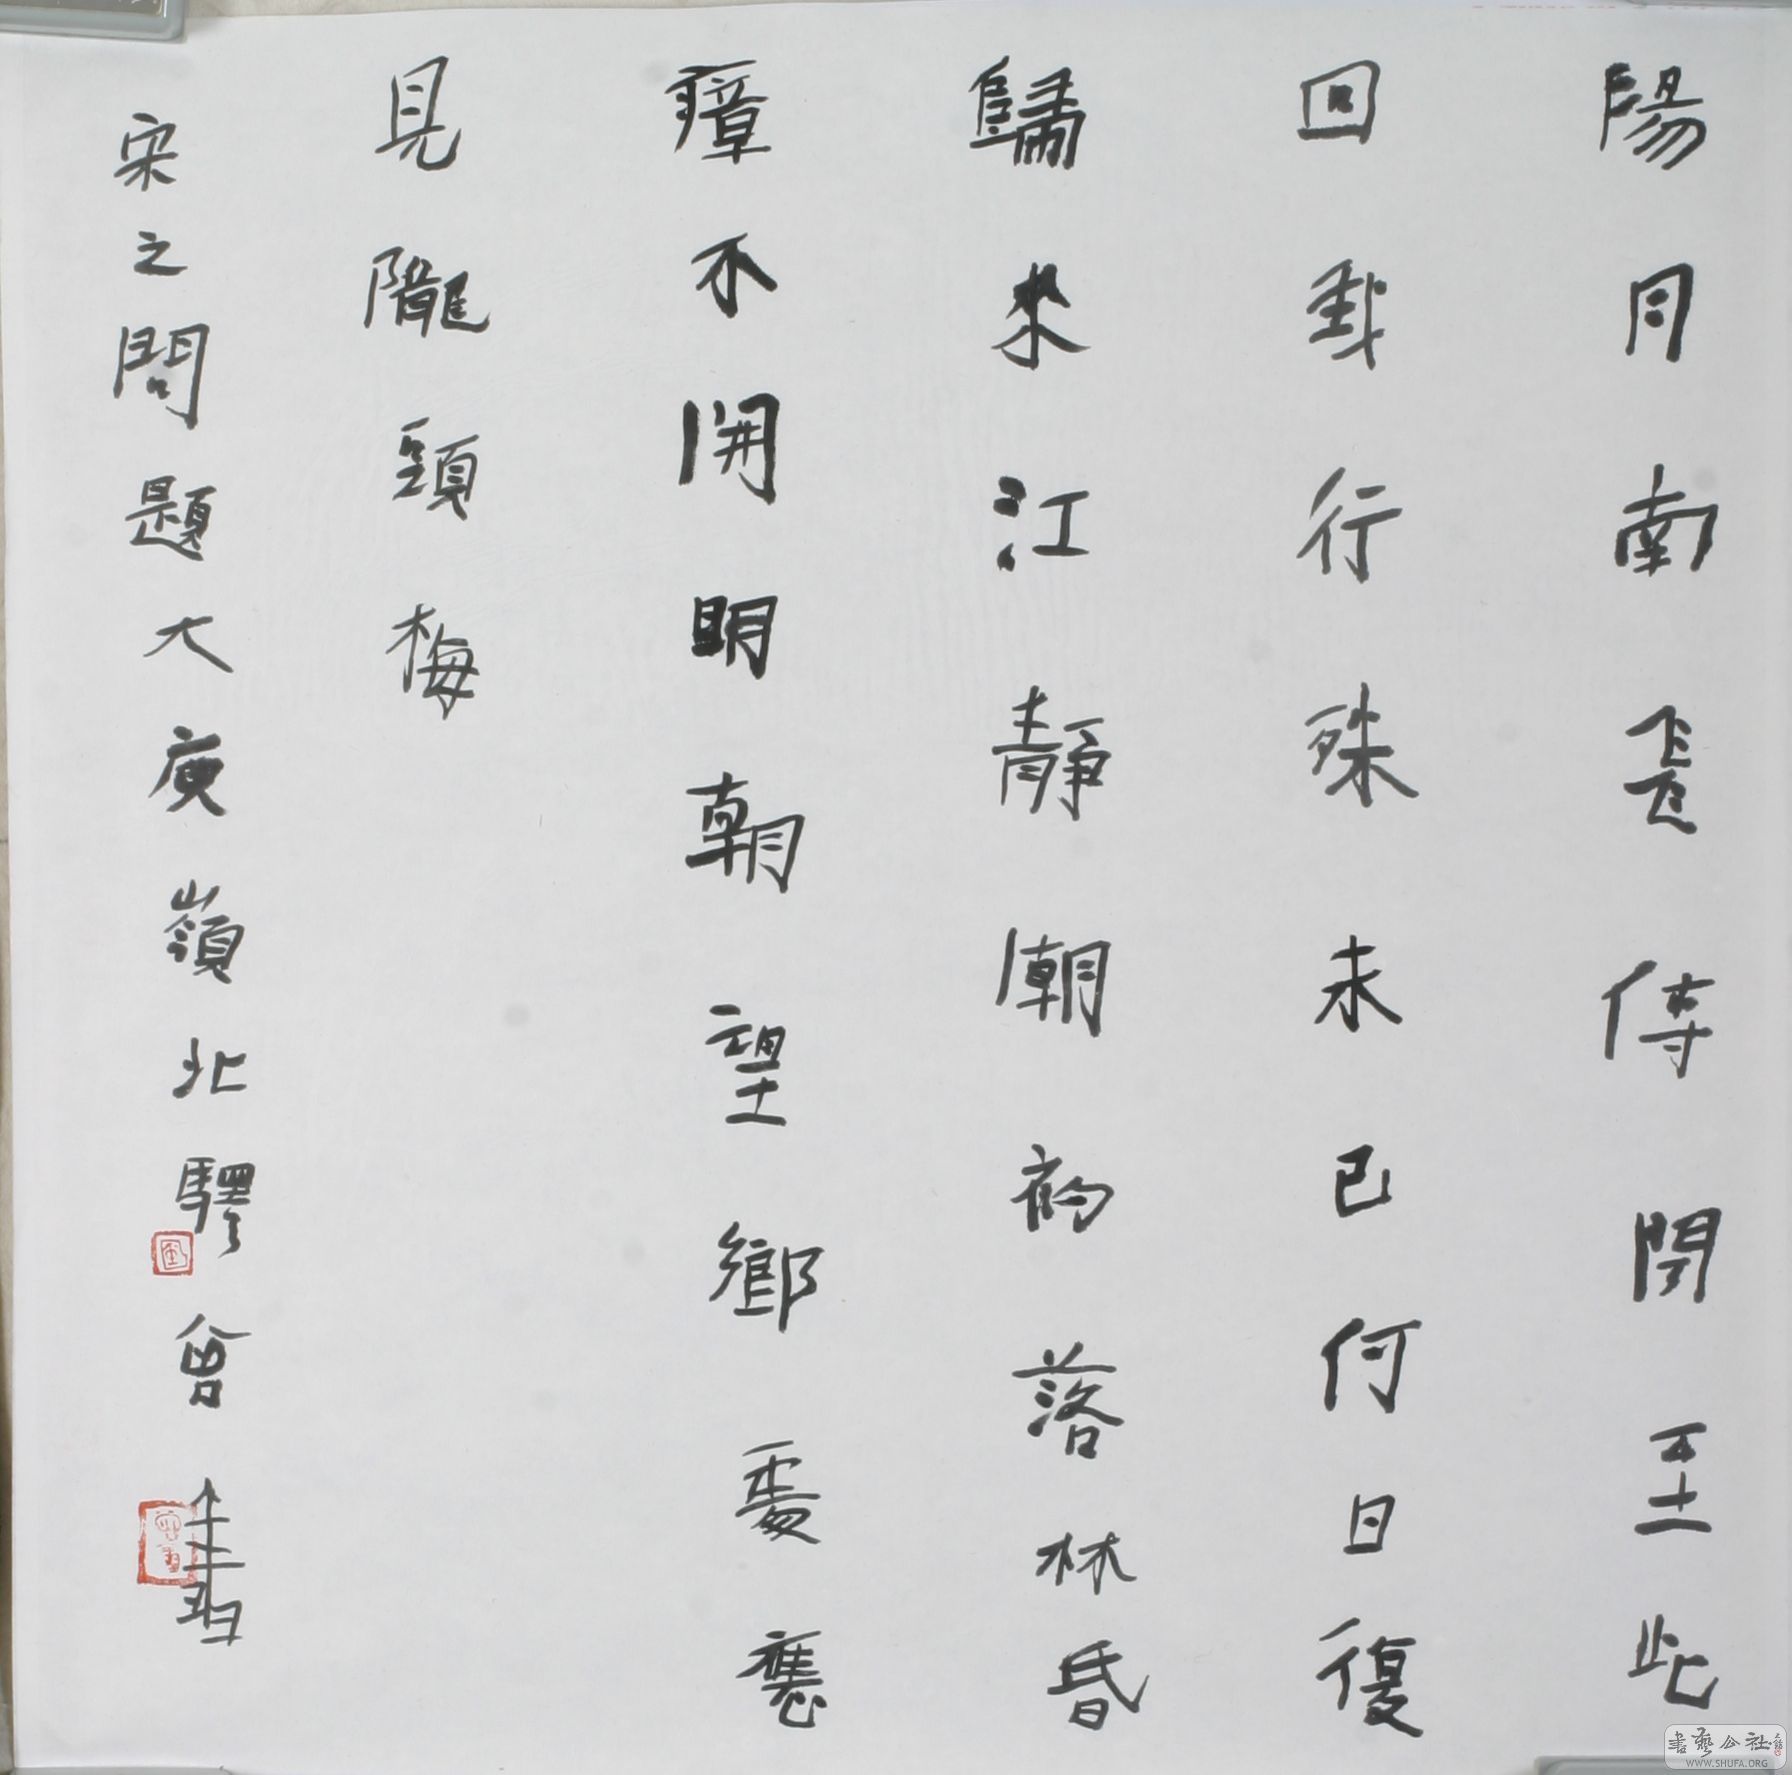 陽月南飛傳聞至此
回我行殊未已何日復
歸來江靜潮初落林昏
瘴不開明朝望鄉處應
見隴頭梅
宋之問題大庾嶺北驛曾
書藝公社
WWW.SHUFA.ORG